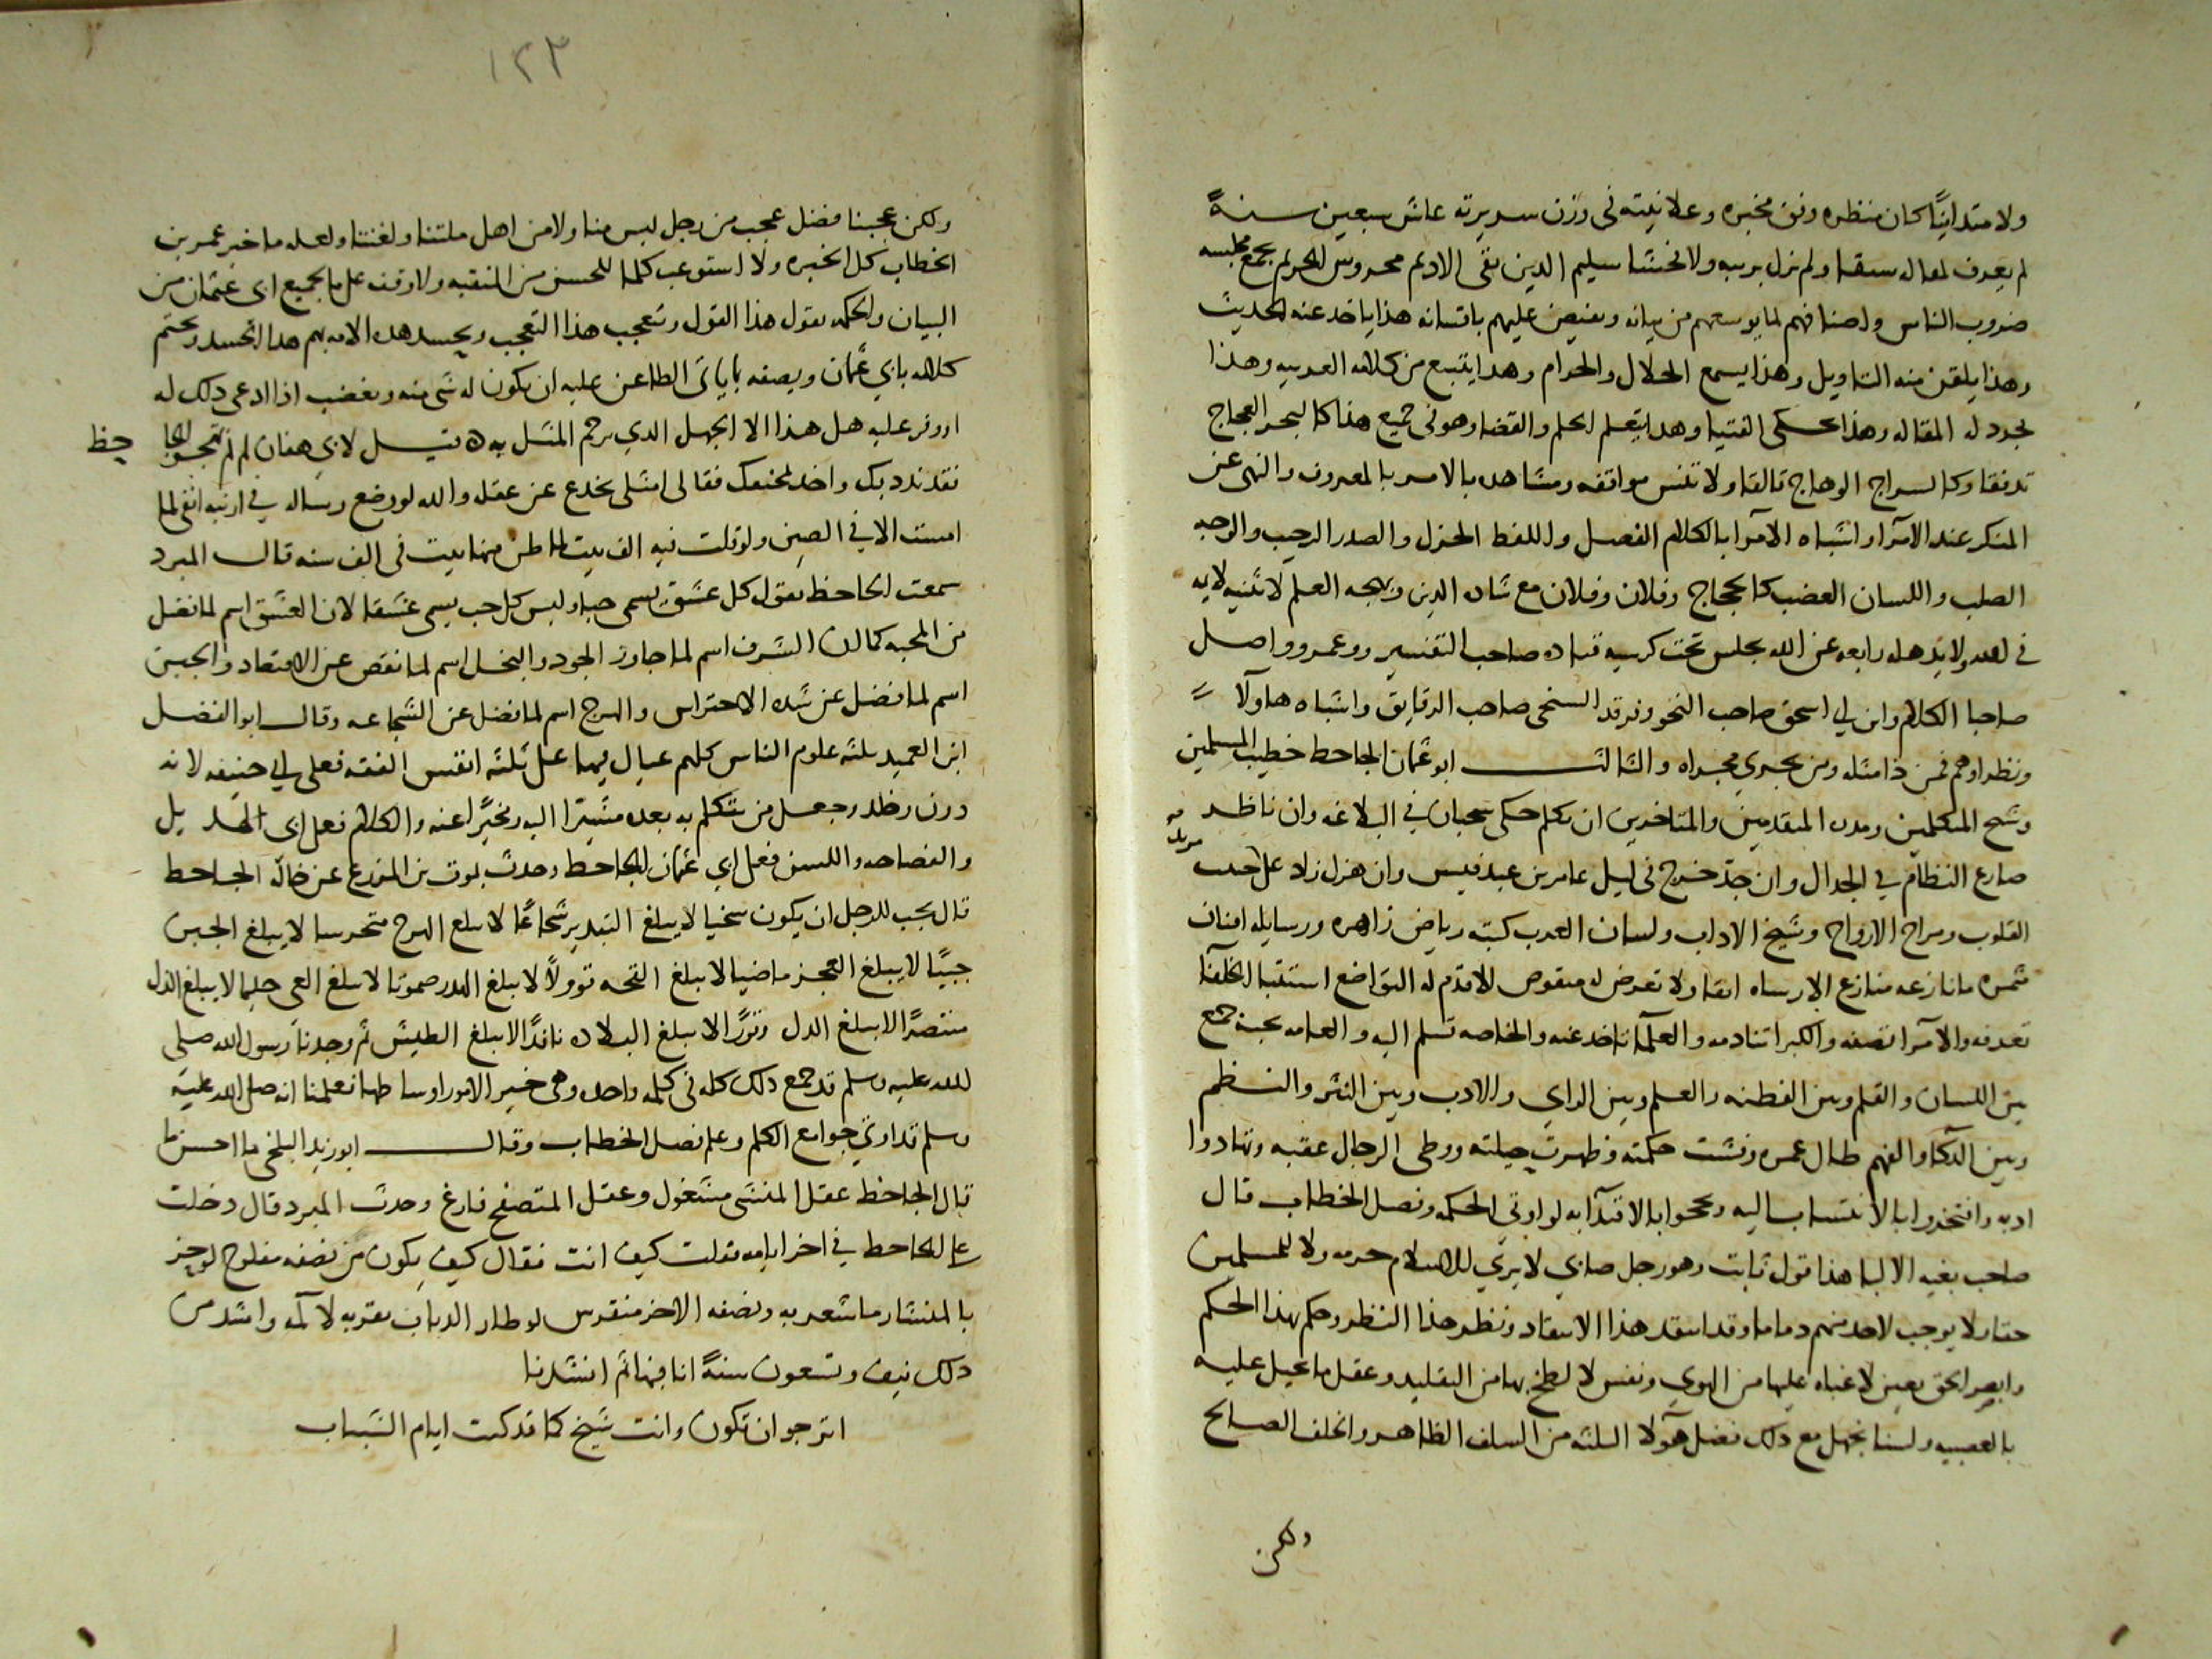 ولا متدانيًا كان منظره وفق مخبره وعلانيته فى وزن سريرته عاش سبعين سنةً
لم يعرف لمقاله سقط ولم يزل بريبه ولا فحشا سليم الدين نقى الاديم محروس الحريم يجمع مجلسه
ضروب الناس واصنافهم لما يوسعهم من بيانه ويفيض عليهم بافتنانه هذا ياخد عنه الحديث
وهذا يلقن منه التاويل وهذا يسمع الحلال والحرام وهدا يتبع من كلامه العربيه وهذا
يجرد له المقاله وهذا يحكى الفتيا وهدا يتعلم الحكم والقضا وهو فى جميع هذا كالبحر العجاج
تدفقا وكالسراج الوهاج تالقا ولا تنس مواقفه ومشاهده بالامر بالمعروف والنهى عن
المنكر عند الامرآ واشباه الامرآ بالكلام الفصل واللفظ الجزل والصدر الرحيب والوجه
الصلب واللسان العضب كالحجاج وفلان وفلان مع شاره الدين وبهجه العلم لا تثنيه لايمه
فى الله ولا يذهله رايعه عن الله يجلس تحت كرسيه قتاده صاحب التفسير وعمرو وواصل
صاحبا الكلام وابن ابي اسحق صاحب النحو وفرقد السبخى صاحب الرقايق واشباه هاولآ
ونظراوهم فمن ذا مثله ومن يجري مجراه والثالث ابو عثمان الجاحظ خطيب المسلمين
وشيخ المتكلمين ومدره المتقدمين والمتاخرين ان تكلم حكى سحبان في البلاغه وان ناظر
صارع النظام في الجدال وان جدّ خرج فى ليل عامر بن عبد قيس وان هزل زاد على مزبد حبيب
القلوب ومراح الارواح وشيخ الاداب ولسان العرب كتبه رياض زاهره ورسايله افنان
مثمره ما نازعه منازع الا رشاه انفا ولا تعرض له منقوص الا قدم له التواضع استبقا الخلفا
تعرفه والامرآ تصفه والكبرا تنادمه والعلمآ تاخد عنه والخاصه تسلم اليه والعامه تحبه جمع
بين اللسان والقلم وبين الفطنه والعلم وبين الراي والادب وبين النثر والنظم
وبين الذكا والفهم طال عمره وفشت حكمته وظهرت حيلته ووطى الرجال عقبه وتهادوا
ادبه وافتخروا بالانتساب اليه ونجحوا بالاقتدآ به لو اوتى الحكمه وفصل الخطاب قال
صاحب بغيه الالبا هذا قول ثابت وهو رجل صابي لا يري للاسلام حرمه ولا للمسلمين
حقا ولا يوجب لاحد منهم دماما وقد انتقد هذا الانتقاد ونظر هذا النظر وحكم بهذا الحكم
وابصر الحق بعين لا غشاوه عليها من الهوي ونفس لا لطخ بها من التقليد وعقل ما تحيل عليه
بالعصبيه ولسنا نجهل مع دلك فضل هولآ الثلثه من السلف الطاهر والخلف الصالح
ولكن
١٢٣
ولكن عجبنا فضل عجب من رجل ليس منا ولا من اهل ملتنا ولغتنا ولعله ما خبر عمر بن
الخطاب كل الخبره ولا استوعب كلما للحسن من المنقبه ولا وقف على ما لجميع ابى عثمان من
البيان والحكمه يقول هذا القول ويتعجب هذا التعجب ويحسد هده الامه بهم هدا الحسد ويختم
كلامه بابي عثمان ويصفه بما يابى الطاعن عليه ان يكون له شى منه ويغضب اذا ادعى دلك له
او وفر عليه هل هذا الا الجهل الدي يرحم المثل به ٥ قيل لابي هفان لم لم تهجوا الجاحظ
فقد ندد بك واخد بمخنقك فقال امثلى يخدع عن عقله والله لو وضع رساله في ارنبه انفى لما
امست الا فى الصين ولو قلت فيه الف بيت لما طن منها بيت فى الف سنه قال المبرد
سمعت الجاحظ يقول كل عشق يسمى حبا وليس كل حب يسمى عشقا لان العشق اسم لما فضل
من المحبه كما ان السرف اسم لما جاوز الجود والبخل اسم لما نقص عن الاقتصاد والجبن
اسم لما فضل عن شده الاحتراس والهوج اسم لما فضل عن الشجاعه وقال ابو الفضل
ابن العميد ثلثه علوم الناس كلهم عيال فيها على ثلثه انفس الفقه فعلى ابي حنيفه لانه
دون وخلد وجعل من يتكلم به بعده مشيرًا اليه ومخبرًا عنه والكلام فعلى ابى الهذيل
والفصاحه واللسن فعلى ابي عثمان الجاحظ وحدث يموت بن المزرع عن خاله الجاحظ
قال يجب للرجل ان يكون سخيا لا يبلغ التبدير شجاعًا لا يبلغ الهوج متحرسا لا يبلغ الجبن
حييًا لا يبلغ العجز ماضيا لا يبلغ القحه قوولًا لا يبلغ الهدر صموتا لا يبلغ العي حليما لا يبلغ الذل
منتصرًا لا يبلغ الظلم وقورًا لا يبلغ البلاده نافدًا لا يبلغ الطيش ثم وجدنا رسول الله صلى
الله عليه وسلم قد جمع دلك كله فى كلمه واحده وهى خير الامور اوساطها فعلمنا انه صلى الله عليه
وسلم قد اوتي جوامع الكلم وعلم فصل الخطاب وقال ابو زيد البلخى ما احسن ما
قال الجاحظ عقل المنشى مشغول وعقل المتصفح فارغ وحدث المبرد قال دخلت
على الجاحظ في اخر ايامه فقلت كيف انت فقال كيف يكون من نصفه مفلوج لو حز
بالمنشار ما شعر به ونصفه الاخر منقرس لو طار الدباب بقربه لالمه واشد من
دلك نيف وتسعون سنةً انا فيها ثم انشدنا
اترجو ان تكون وانت شيخ كما قد كنت ايام الشباب